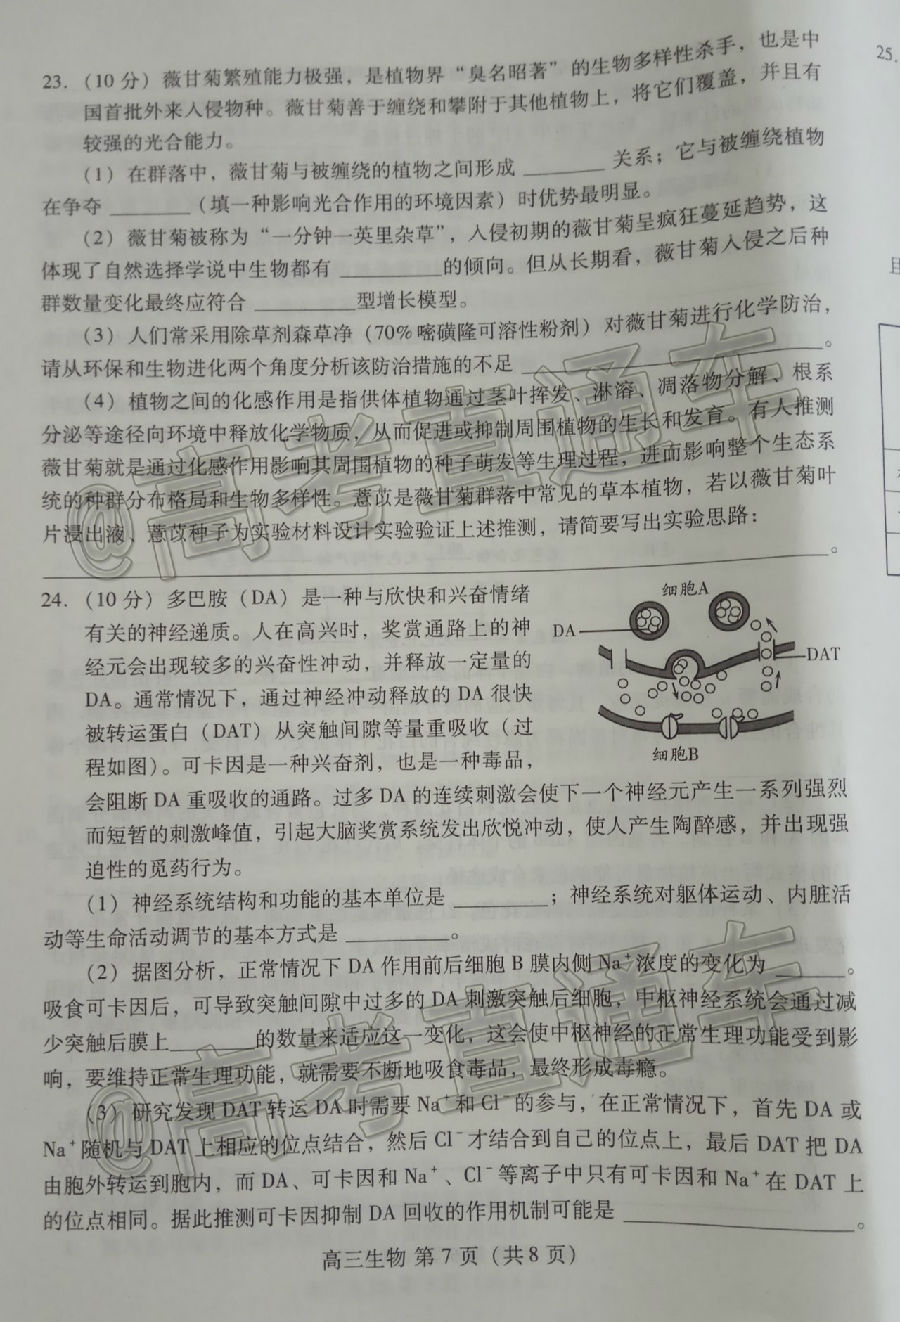 23.（10 分）薇甘菊繁殖能力极强，是植物界“臭名昭著”的生物多样性杀手，也是中
国首批外来入侵物种。薇甘菊善于缠绕和攀附于其他植物上，将它们覆盖，并且有
较强的光合能力。
（1）在群落中，薇甘菊与被缠绕的植物之间形成 ________ 关系；它与被缠绕植物
在争夺 ________（填一种影响光合作用的环境因素）时优势最明显。
（2）薇甘菊被称为“一分钟一英里杂草”，入侵初期的薇甘菊呈疯狂蔓延趋势，这
体现了自然选择学说中生物都有 ________的倾向。但从长期看，薇甘菊入侵之后种
群数量变化最终应符合 ________型增长模型。
（3）人们常采用除草剂森草净（70%嘧磺隆可溶性粉剂）对薇甘菊进行化学防治，
请从环保和生物进化两个角度分析该防治措施的不足 ________。
（4）植物之间的化感作用是指供体植物通过茎叶挥发、淋溶、凋落物分解、根系
分泌等途径向环境中释放化学物质，从而促进或抑制周围植物的生长和发育。有人推测
薇甘菊就是通过化感作用影响其周围植物的种子萌发等生理过程，进而影响整个生态系
统的种群分布格局和生物多样性。薏苡是薇甘菊群落中常见的草本植物，若以薇甘菊叶
片浸出液、薏苡种子为实验材料设计实验验证上述推测，请简要写出实验思路：
________。
24.（10 分）多巴胺（DA）是一种与欣快和兴奋情绪
有关的神经递质。人在高兴时，奖赏通路上的神
经元会出现较多的兴奋性冲动，并释放一定量的
DA。通常情况下，通过神经冲动释放的 DA 很快
被转运蛋白（DAT）从突触间隙等量重吸收（过
程如图）。可卡因是一种兴奋剂，也是一种毒品，
会阻断 DA 重吸收的通路。过多 DA 的连续刺激会使下一个神经元产生一系列强烈
而短暂的刺激峰值，引起大脑奖赏系统发出欣悦冲动，使人产生陶醉感，并出现强
迫性的觅药行为。
细胞A
DA
DAT
细胞B
（1）神经系统结构和功能的基本单位是 ________；神经系统对躯体运动、内脏活
动等生命活动调节的基本方式是 ________。
（2）据图分析，正常情况下 DA 作用前后细胞 B 膜内侧 Na⁺浓度的变化为 ________。
吸食可卡因后，可导致突触间隙中过多的 DA 刺激突触后细胞，中枢神经系统会通过减
少突触后膜上________的数量来适应这一变化，这会使中枢神经的正常生理功能受到影
响，要维持正常生理功能，就需要不断地吸食毒品，最终形成毒瘾。
（3）研究发现 DAT 转运 DA 时需要 Na⁺和 Cl⁻的参与，在正常情况下，首先 DA 或
Na⁺随机与 DAT 上相应的位点结合，然后 Cl⁻才结合到自己的位点上，最后 DAT 把 DA
由胞外转运到胞内，而 DA、可卡因和 Na⁺、Cl⁻等离子中只有可卡因和 Na⁺在 DAT 上
的位点相同。据此推测可卡因抑制 DA 回收的作用机制可能是 ________。
高三生物 第 7 页（共 8 页）
25.
@高考直通车
@高考直通车